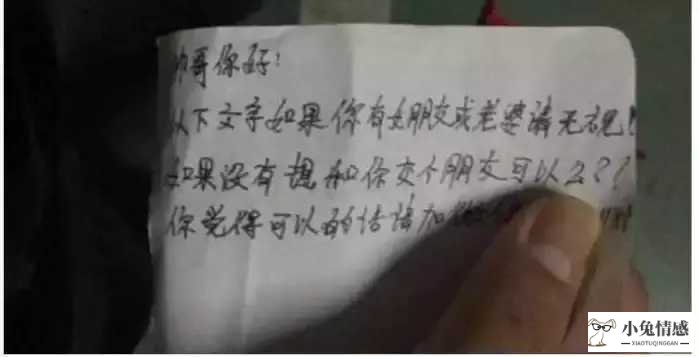 帅哥你好:
以下文字如果你有女朋友或老婆请无视!
如果没有想和你交个朋友可以么??
你觉得可以的话请加
小兔情感
XIAOTUQINGGAN